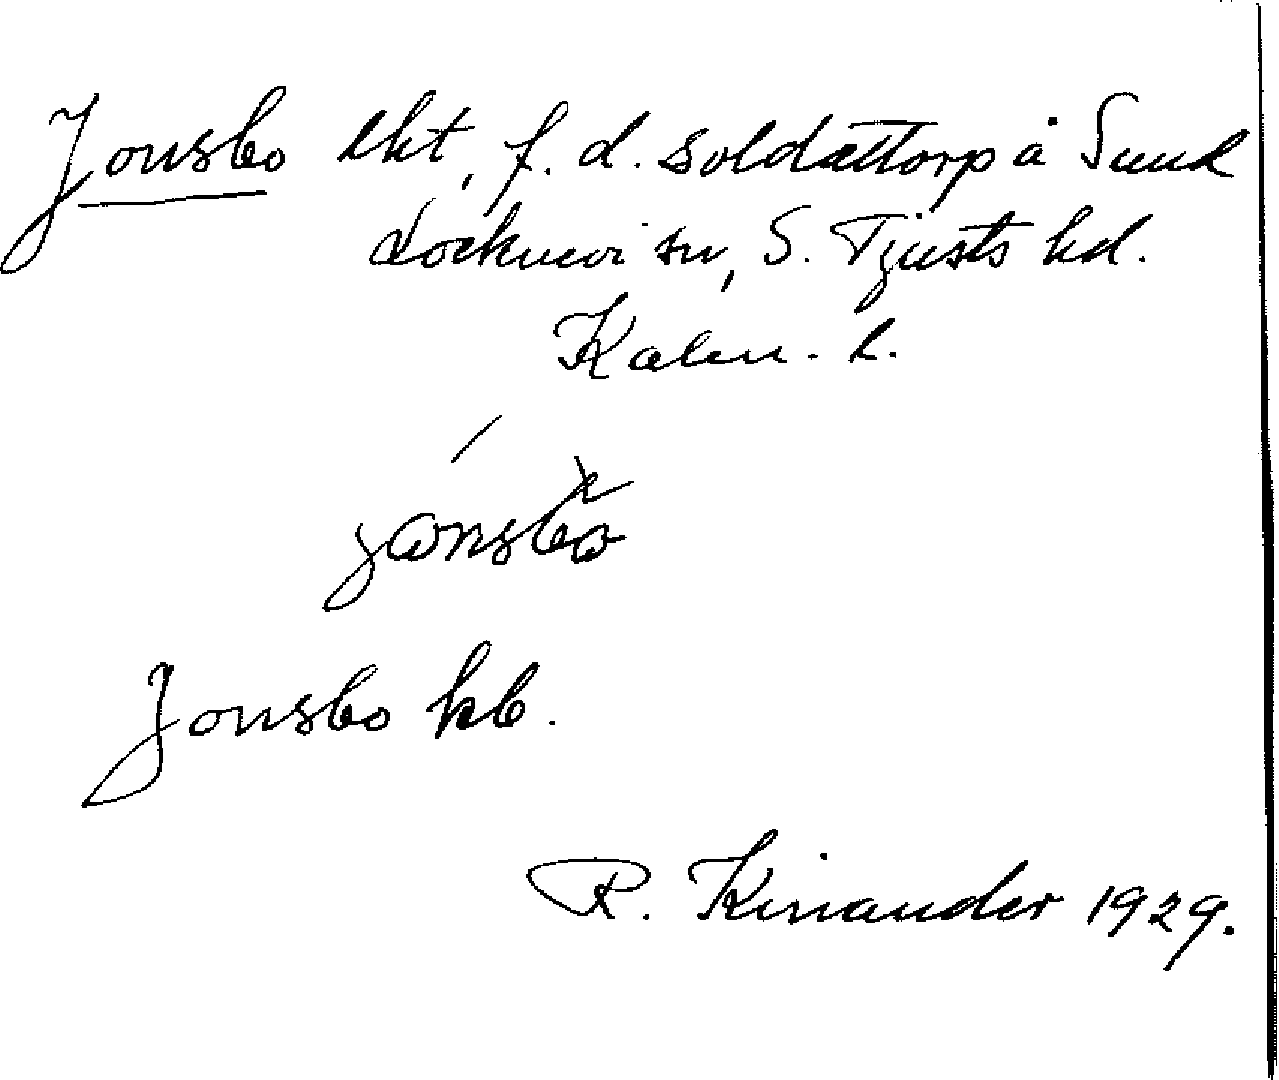 Jonsbo lht, f. d. soldattorp å Sund
Locknevi sn, S. Tjusts hd.
Kalm. l.
Jonsbo kb.
R. Kinander 1929.